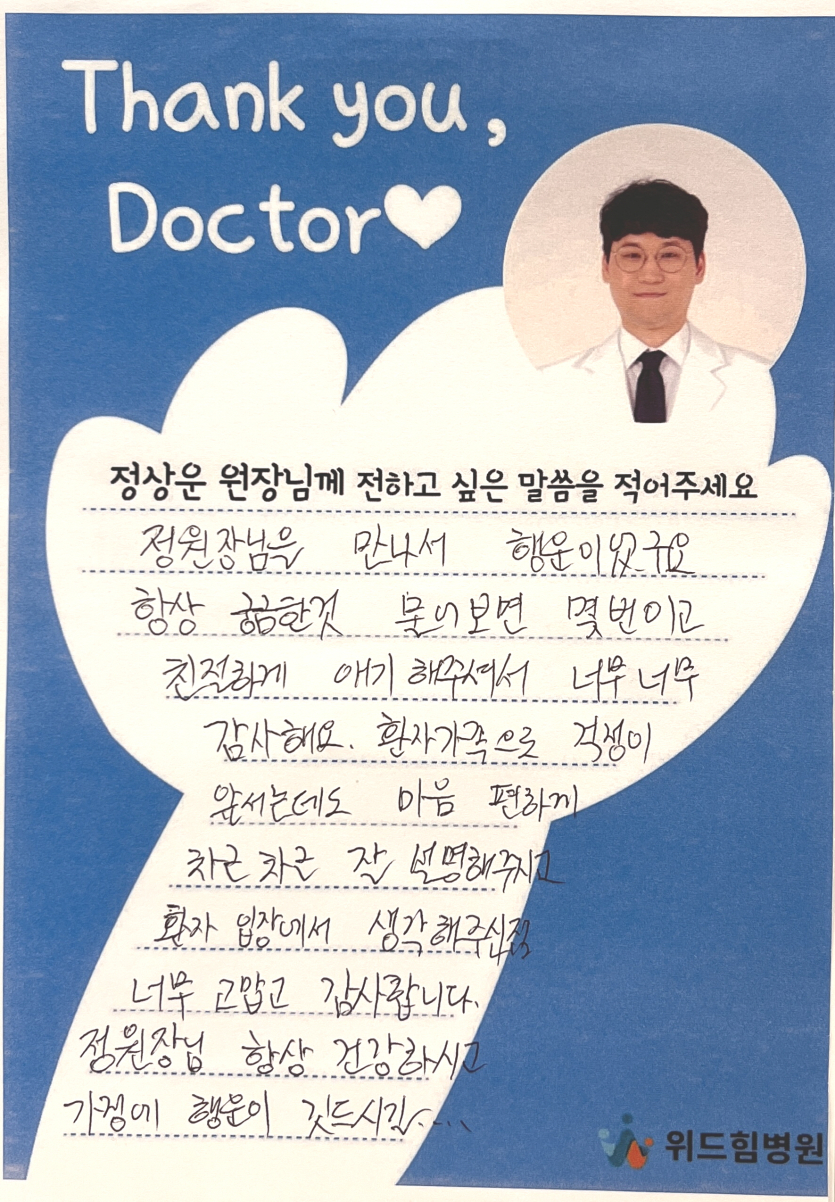 Thank you,
Doctor
정상운 원장님께 전하고 싶은 말씀을 적어주세요
정원장님을 만나서 행운이였구요
항상 궁금한것 문의보면 몇번이고
친절하게 얘기 해주셔서 너무 너무
감사해요. 환자가족으로 걱정이
앞서는데도 마음 편하게
차근 차근 잘 설명해주시고
환자 입장에서 생각해주신점
너무 고맙고 감사합니다.
정원장님 항상 건강하시고
가정에 행운이 깃드시길....
위드힘병원